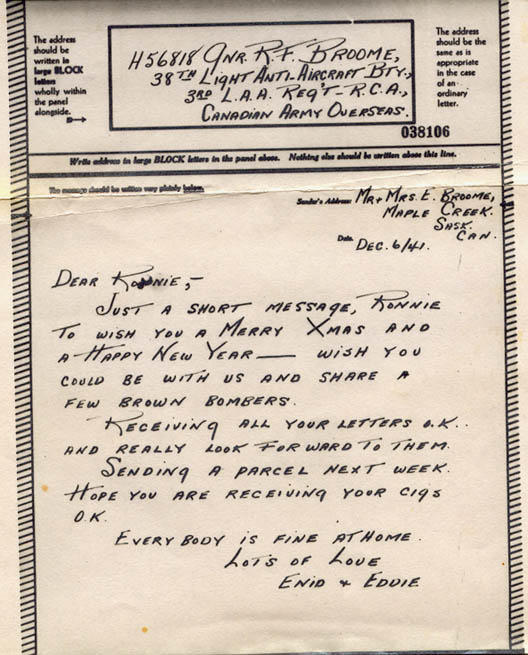 The address
should be
written in
large BLOCK
letters
wholly within
the panel
alongside.
H56818 GNR. R.F. BROOME,
38TH LIGHT ANTI-AIRCRAFT BTY.,
3RD L.A.A. REG'T-R.C.A.,
CANADIAN ARMY OVERSEAS.
The address
should be the
same as is
appropriate
in the case
of an
ordinary
letter.
038106
Write address in large BLOCK letters in the panel above. Nothing else should be written above this line.
The message should be written very plainly below.
Sender's Address: MR + MRS. E. BROOME,
MAPLE CREEK.
SASK.
CAN.
Date. DEC. 6/41.
DEAR RONNIE,-
JUST A SHORT MESSAGE, RONNIE
TO WISH YOU A MERRY XMAS AND
A HAPPY NEW YEAR — WISH YOU
COULD BE WITH US AND SHARE A
FEW BROWN BOMBERS.
RECEIVING ALL YOUR LETTERS O.K..
AND REALLY LOOK FORWARD TO THEM.
SENDING A PARCEL NEXT WEEK.
HOPE YOU ARE RECEIVING YOUR CIGS
O.K.
EVERYBODY IS FINE AT HOME.
LOTS OF LOVE
ENID & EDDIE